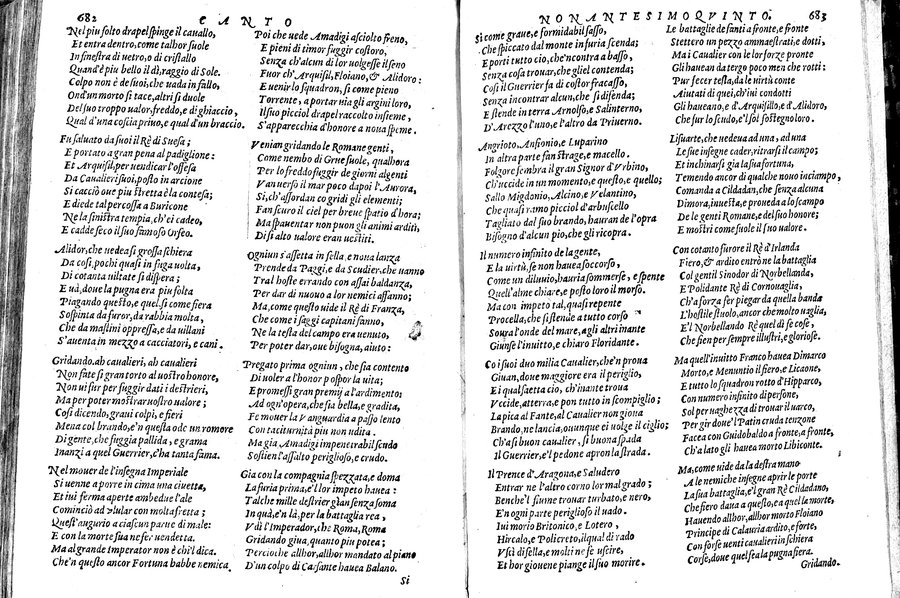 682 CANTO
Nel piu folto drapel spinge il cauallo,
Et entra dentro, come talhor suole
In finestra di uetro, o di cristallo
Quand'è piu bello il dì, raggio di Sole.
Colpo non è de suoi, che uada in fallo,
Ond'un morto si tace, altri si duole
Del suo troppo ualor, freddo, e di ghiaccio,
Qual d'una coscia priuo, e qual d'un braccio.
Fu saluato da suoi il Rè di Suesa;
E portato a gran pena al padiglione:
Et Arquisil, per uendicar l'offesa
Da Caualieri suoi, posto in arcione
Si cacciò oue piu stretta è la contesa;
E diede tal percossa a Buricone
Ne la sinistra tempia, ch'ei cadeo,
E cadde seco il suo famoso Orseo.
Alidor, che uede a sì grossa schiera
Da così, pochi quasi in fuga uolta,
Di cotanta uiltate si dispera;
E uà, doue la pugna era piu folta
Piagando questo, e quel, sì come fiera
Sospinta da furor, da rabbia molta,
Che da mastini oppressa, e da uillani
S'auenta in mezzo a cacciatori, e cani.
Gridando, ah caualieri, ah caualieri
Non fate sì gran torto al uostro honore,
Non ui fur per fuggir dati i destrieri,
Ma per poter mostrar uostro ualore;
Così dicendo, graui colpi, e fieri
Mena col brando, e'n questa ode un romore
Di gente, che fuggia pallida, e grama
Inanzi a quel Guerrier, c'ha tanta fama.
Nel mouer de l'insegna Imperiale
Si uenne a porre in cima una ciuetta,
Et iui ferma aperte ambedue l'ale
Cominciò ad vlular con molta fretta;
Quest'augurio a ciascun parte di male:
E con la morte sua ne fer uendetta.
Ma al grande Imperator non è chi'l dica.
Che'n questo ancor Fortuna habbe nemica.
Poi che uede Amadigi asciolto freno,
E pieni di timor fuggir costoro,
Senza ch'alcun di lor uolgesse il seno
Fuor ch'Arquisil, Floiano, & Alidoro:
E uenir lo squadron, sì come pieno
Torrente, a portar uia gli argini loro,
Il suo picciol drapel raccolto insieme,
S'apparecchia d'honore a noua speme.
Venian gridando le Romane genti,
Come nembo di Grue suole, qualhora
Per lo freddo fuggir de giorni algenti
Van uerso il mar poco dapoi l'Aurora,
Sì, ch'assordan co gridi gli elementi;
Fan scuro il ciel per breue spatio d'hora;
Ma spauentar non puon gli animi arditi,
Di sì alto ualore eran uestiti.
Ogniun s'assetta in sella, e noua lanza
Prende da Paggi, e da Scudier, che uanno
Tra l'hoste errando con assai baldanza,
Per dar di nuouo a lor nemici affanno;
Ma, come questo uide il Rè di Franza,
Che come i saggi capitani fanno,
Ne la testa del campo era uenuto,
Per poter dar, oue bisogna, aiuto:
Pregato prima ogniun, che sia contento
Di uoler a l'honor pospor la uita;
E promessi gran premij a l'ardimento;
Ad ogn'opera, che sia bella, e gradita,
Fe mouer la Vanguardia a passo lento
Con taciturnità piu non udita.
Ma già Amadigi impenetrabil scudo
Sostien l'assalto periglioso, e crudo.
Già con la compagnia spezzata, e doma
La furia prima, e'l lor impeto hauea:
Talche mille destrier gian senza soma
In quà, e'n là, per la battaglia rea,
Vdì l'Imperador, che Roma, Roma
Gridando giua, quanto piu potea;
Percioche allhor, allhor mandato al piano
D'un colpo di Cassante hauea Balano.
Si
NONANTESIMOQVINTO. 683
Si come graue, e formidabil sasso,
Che spiccato dal monte in furia scenda;
E porti tutto ciò, che'ncontra a basso,
Senza cosa trouar, che gliel contenda;
Così il Guerrier fa di costor fracasso,
Senza incontrar alcun, che si difenda;
E stende in terra Arnolfo, e Salinterno,
D'Arezzo l'uno, e l'altro da Priuerno.
Angrioto Ansionio, e Luparino
In altra parte fan strage, e macello.
Folgore sembra il gran Signor d'Vrbino,
Ch'uccide in un momento, e questo, e quello;
Sallo Migdonio, Alcino, e Velantino,
Che quasi ramo picciol d'arbuscello
Tagliato dal suo brando, hauran de l'opra
Bisogno d'alcun pio, che gli ricopra.
Il numero infinito de la gente,
E la uirtù, se non hauea soccorso,
Come un diluuio, hauria sommerse, e spente
Quell'alme chiare, e posto loro il morso.
Ma con impeto tal, quasi repente
Procella, che si stende a tutto corso
Soura l'onde del mare, a gli altri inante
Giunse l'inuitto, e chiaro Floridante.
Co i suoi duo milia Caualier, che'n proua
Giuan, doue maggiore era il periglio,
E i qual saetta ciò, ch'inante troua
Vccide, atterra, e pon tutto in scompiglio;
La pica al Fante, al Caualier non gioua
Brando, ne lancia, ouunque ei uolge il ciglio;
Ch'a sì buon caualier, sì buona spada
Il Guerrier, e'l pedone apron la strada.
Il Prence d'Aragona, e Saludero
Entrar ne l'altro corno lor mal grado;
Benche'l fiume trouar turbato, e nero,
E'n ogni parte periglioso il uado.
Iui morio Britonico, e Lotero,
Hircalo, e Policreto, il qual di rado
Vscì di sella, e molti ne fè uscire,
Et hor giouene piange il suo morire.
Le battaglie de fanti a fronte, e fronte
Stettero un pezzo ammaestrati, e dotti,
Ma i Caualier con le lor forze pronte
Gli hauean da tergo poco men che rotti:
Pur fecer testa, da le uirtù conte
Aiutati di quei, ch'iui condotti
Gli haueano, e d'Arquisillo, e d'Alidoro,
Che fur lo scudo, e'l sol sostegno loro.
Lisuarte, che uedeua ad una, ad una
Le sue insegne cader, ritrarsi il campo;
Et inchinarsi già la sua fortuna,
Temendo ancor di qualche nouo inciampo,
Comanda a Cildadan, che senza alcuna
Dimora, inuesta, e proueda a lo scampo
De le genti Romane, e del suo honore;
E mostri come suole il suo ualore.
Con cotanto furore il Rè d'Irlanda
Fiero, & ardito entrò ne la battaglia
Col gentil Sinodor di Norbellanda,
E Polidante Rè di Cornouaglia,
Ch'a forza fer piegar da quella banda
L'hostile stuolo, ancor che molto uaglia,
E'l Norbellando Rè quel dì fè cose,
Che fien per sempre illustri, e gloriose.
Ma quell'inuitto Franco hauea Dimarco
Morto, e Menuntio il fiero, e Licaone,
E tutto lo squadron rotto d'Hipparco,
Con numero infinito di persone,
Sol per uaghezza di trouar il uarco,
Per gir doue'l Patin cruda tenzone
Facea con Guidobaldo a fronte, a fronte,
Ch'a lato gli hauea morto Libiconte.
Ma, come uide da la destra mano
A le nemiche insegne aprir le porte
La sua battaglia, e'l gran Rè Cildedano,
Che fiero dana a questo, ea quel la morte,
Hauendo allhor, allhor morto Floiano
Principe di Calauria ardito, e forte,
Con forse uenti caualieri in schiera
Corse, doue quel fea la pugna fiera.
Gridando.